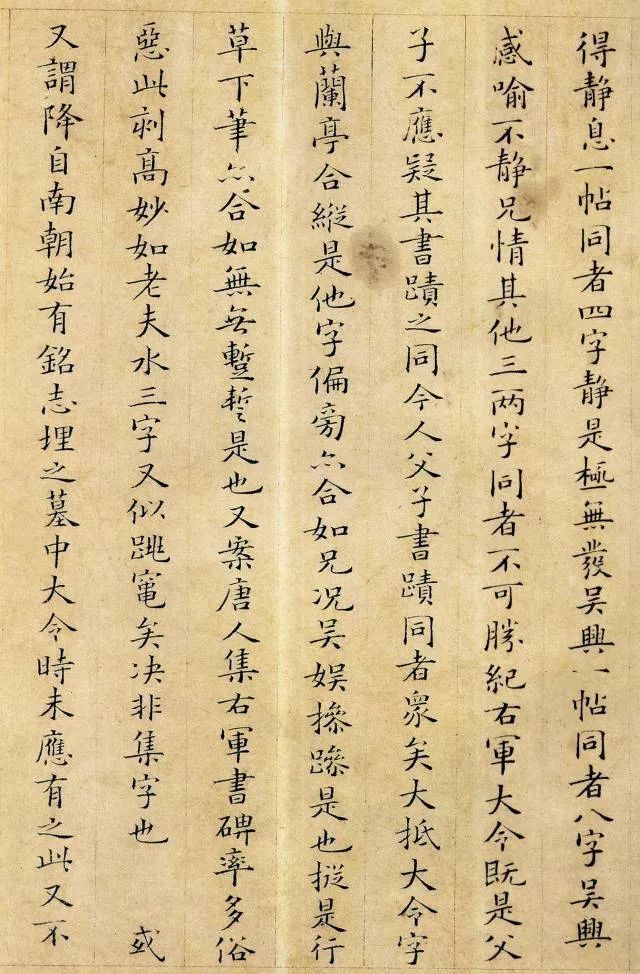 得静息一帖同者四字静是極無發吴興一帖同者八字吴興
感喻不静兄情其他三两字同者不可勝紀右軍大令既是父
子不應疑其書蹟之同今人父子書蹟同者衆矣大抵大令字
與蘭亭合縱是他字偏旁亦合如兄况吴娱摻蹨是也捴是行
草下筆亦合如無无蹔誓是也又案唐人集右軍書碑率多俗
惡此刻高妙如老夫水三字又似跳竄矣决非集字也 或
又謂降自南朝始有銘志埋之墓中大令時未應有之此又不